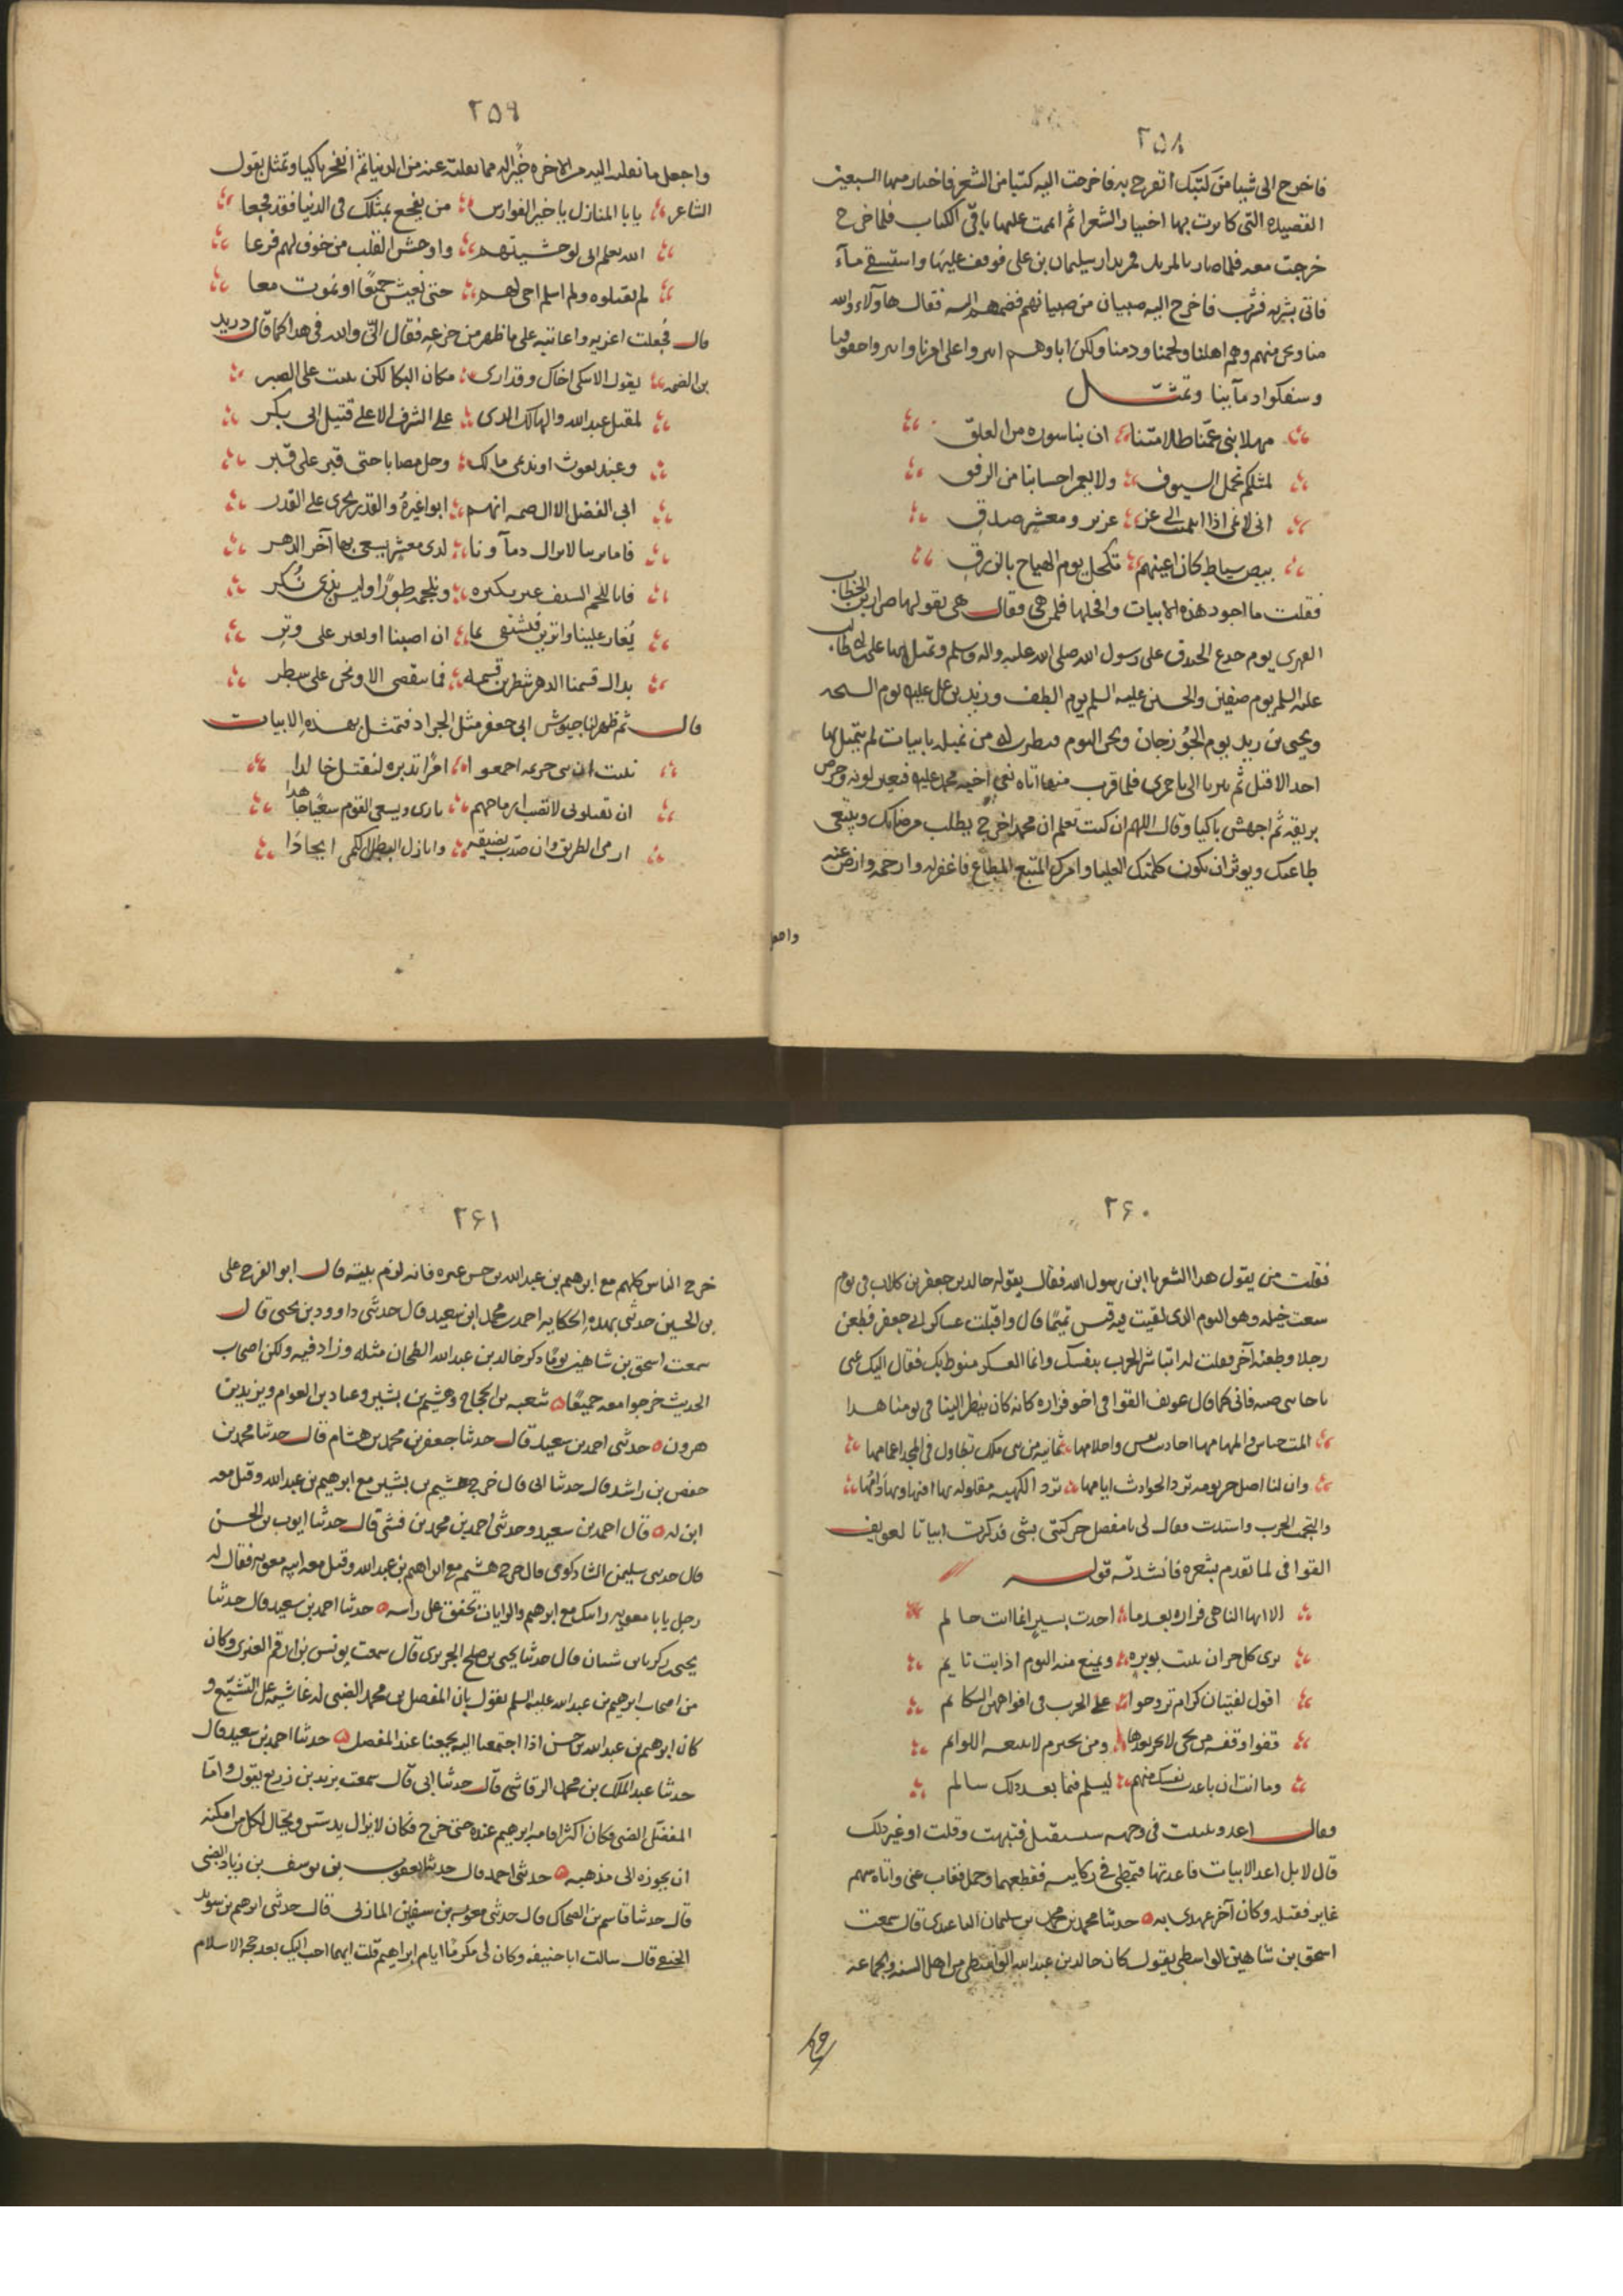 ٢٥٨
فاخرج الى شيئا من كتبك اتفرج به فاخرجت اليه كتبا من الشعر فاختار منها السبعين
القصيدة التي كانوت بها اختيار الشعرا ثم اتممت عليها باقي الكتاب فلما خرج
خرجت معه فلما صار بالمربد مر بدار سليمان بن علي فوقف عليها واستسقى مآء
فاتى بشربة فشرب فاخرج اليه صبيان من صبيانهم فضمهم اليه فقال هاولاء والله
منا ونحن منهم وهم اهلنا ولحمنا ودمنا ولكن اباوهم انتزوا على امرنا وابتزوا حقوقنا
وسفكوا دمآئنا وتمثل
مهلا بني عمنا ظلامتنا ان بنا سورة من العلق
لمثلكم نحمل السيوف ولا نغمز احسابنا من الرقق
اني لانمى اذا انتميت الى عز عزيز ومعشر صدق
بيض سباط كان اعينهم تكحل يوم الهياج بالزرق
فقلت ما اجود هذه الابيات وافحلها فلمن هي فقال هي يقولها ضرار بن الخطاب
الفهري يوم جزع الخندق على رسول الله صلى الله عليه واله وسلم وتمثل بها علي بن ابي طالب
عليه السلم يوم صفين والحسين عليه السلم يوم الطف وزيد بن علي عليه يوم السبخه
ويحيى بن زيد يوم الجوزجان ونحن اليوم فتطيرت له من تمثله بابيات لم يتمثل بها
احد الا قتل ثم سرنا الى باخمرى فلما قرب منها اتاه نعي اخيه محمد عليه فتغير لونه وجرض
بريقه ثم اجهش باكيا وقال اللهم ان كنت تعلم ان محمدا خرج يطلب مرضاتك ويبتغي
طاعتك ويوثر ان تكون كلمتك العليا وامرك المتبع المطاع فاغفر له وارحمه وارض عنه
واجعل
٢٥٩
واجعل ما نقلته اليه من الاخره خيرا له مما نقلته عنه من الدنيا ثم انفجر باكيا وتمثل بقول
الشاعر يابا المنازل يا خير الفوارس من يفجع بمثلك في الدنيا فقد فجعا
الله يعلم اني لو خشيتهم واوحش القلب من خوف لهم فزعا
لم يقتلوه ولم اسلم اخي لهم حتى نعيش جميعا او نموت معا
قال فجعلت اعزيه واعاتبه على ما ظهر من جزعه فقال اني والله في هذا كما قال دريد
بن الصمه يقول الا تبكي اخاك وقد ارى مكان البكا لكن بنيت على الصبر
لمقتل عبد الله والهالك الذي على الشرف الاعلى قتيل ابي بكر
وعبد يغوث او نديمي مالك وجل مصابا حتى قبر على قبر
ابى القتل الا ال صمه انهم ابوا غيره والقدر يجرى على القدر
فاما ترينا لا تزال دمآونا لدى معشر يسعى بها آخر الدهر
فانا للحم السيف غير نكيره ونلحمه طورا وليس بذي نكر
يغار علينا واترين فيشتفى بنا ان اصبنا او نغير على وتر
بذاك قسمنا الدهر شطرين قسمة فما ينقضي الا ونحن على شطر
قال ثم ظهر لنا جيوش ابي جعفر مثل الجراد فتمثل بهذه الابيات
نبئت ان بني جذيمه اجمعوا امرا تدبره لتقتل خالدا
ان تقتلوني لا تصب ارماحهم ثاري ويسعى القوم سعيا جاهدا
ارمي الطريق وان صددت بضيقة وانازل البطل الكمي الحادا
٢٦٠
فقلت من يقول هذا الشعر يا ابن رسول الله فقال يقوله خالد بن جعفر بن كلاب في يوم
شعب جبله وهو اليوم الذي لقيت فيه قيس تميما قال واقبلت عساكر ابي جعفر فطعن
رجلا وطعنه آخر فقلت له اتباشر الحرب بنفسك وانما العسكر منوط بك فقال اليك عني
يا اخا بني ضبه فاني كما قال عويف القوافي اخو فزاره كانه كان ينظر الينا في يومنا هذا
المت خناس والمامها احاديث نفس واحلامها ثمانية من بني مالك تطاول في المجد اعمامها
وان لنا اصل جرثومة ترد الحوادث ايامها ترد الكتيبة مفلولة بها افنها وبها ذامها
والتحمت الحرب واشتدت فقال لي يا مفضل حركني بشى فذكرت ابياتا لعويف
القوافي لما تقدم بشعره فانشدته قوله
الا ايها الناهي فزاره بعد ما اجدت بسير انما انت حالم
ترى كل حر ان يبيت بوتره وتمنع منه النوم اذ انت نايم
اقول لفتيان كرام تروحوا على الجرد في افواههن الشكايم
قفوا وقفه من يحي لا يخز بعدها ومن يخترم لا تتبعه اللوايم
وما انت ان باعدت نفسك منهم ليسلم فيما بعد ذلك سالم
فقال اعد وتبينت في وجهه فتنبهت وقلت او غير ذلك
قال لا بل اعد الابيات فاعدتها فتمطى في ركابيه فقطعهما وحمل فغاب عني واتاه سهم
غاير فقتله وكان آخر عهدي به حدثنا محمد بن محمد بن سليمان الباغندي قال سمعت
اسحق بن شاهين الواسطي يقول كان خالد بن عبد الله الواسطي من اهل السنه والجماعه
٢٦١
خرج الناس كلهم مع ابرهيم بن عبد الله بن حسن غيره فانه لزم بيته قال ابو الفرج علي
بن الحسين حدثني بهذه الحكايه احمد بن محمد ابن سعيد قال حدثني داوود بن يحيى قال
سمعت اسحق بن شاهين يوما ذكر خالد بن عبد الله الطحان مثله وزاد فيه ولكن اصحاب
الحديث خرجوا معه جميعا شعبه بن الحجاج وهشيم بن بشير وعباد بن العوام ويزيد بن
هرون حدثني احمد بن سعيد قال حدثنا جعفر بن محمد بن هشام قال حدثنا محمد بن
حفص بن راشد قال حدثنا ابي قال خرج هشيم بن بشير مع ابرهيم بن عبد الله وقتل معه
ابن له قال احمد بن سعيد وحدثني احمد بن محمد بن قال حدثنا ايوب بن الحسن
قال حدثني سليمن الشاذكوني قال خرج هشيم مع ابراهيم بن عبد الله وقتل معه ابنه معويه فقال له
رجل يابا معويه رايتك مع ابرهيم والرايات تخفق على راسه حدثنا احمد بن سعيد قال حدثنا
يحيى زكريا بن شيبان قال حدثنا يحيى بن صلح الجريري قال سمعت يونس بن ارقم العنزي وكان
من اصحاب ابرهيم بن عبد الله عليه السلم يقول بان المفضل بن محمد الضبي له غاشيه على التشيع و
كان ابرهيم بن عبد الله بن حسن اذا اجتمعنا اليه يجمعنا عند المفضل حدثنا احمد بن سعيد قال
حدثنا عبد الملك بن محمد الرقاشي قال حدثنا ابي قال سمعت يزيد بن زريع يقول واتا
المفضل الضبي فكان اكثر اقامة ابرهيم عنده حتى خرج فكان لا يزال يدسس ويحتال لكل من امكنه
ان يجوزه الى مذهبه حدثني احمد قال حدثنا يعقوب بن يوسف بن زياد الضبي
قال حدثنا قاسم بن الضحاك قال حدثني معويه بن سفين المازني قال حدثني ابرهيم بن سويد
الحنفي قال سالت ابا حنيفه وكان لي مكرما ايام ابراهيم قلت ايهما احب اليك بعد حجة الاسلام